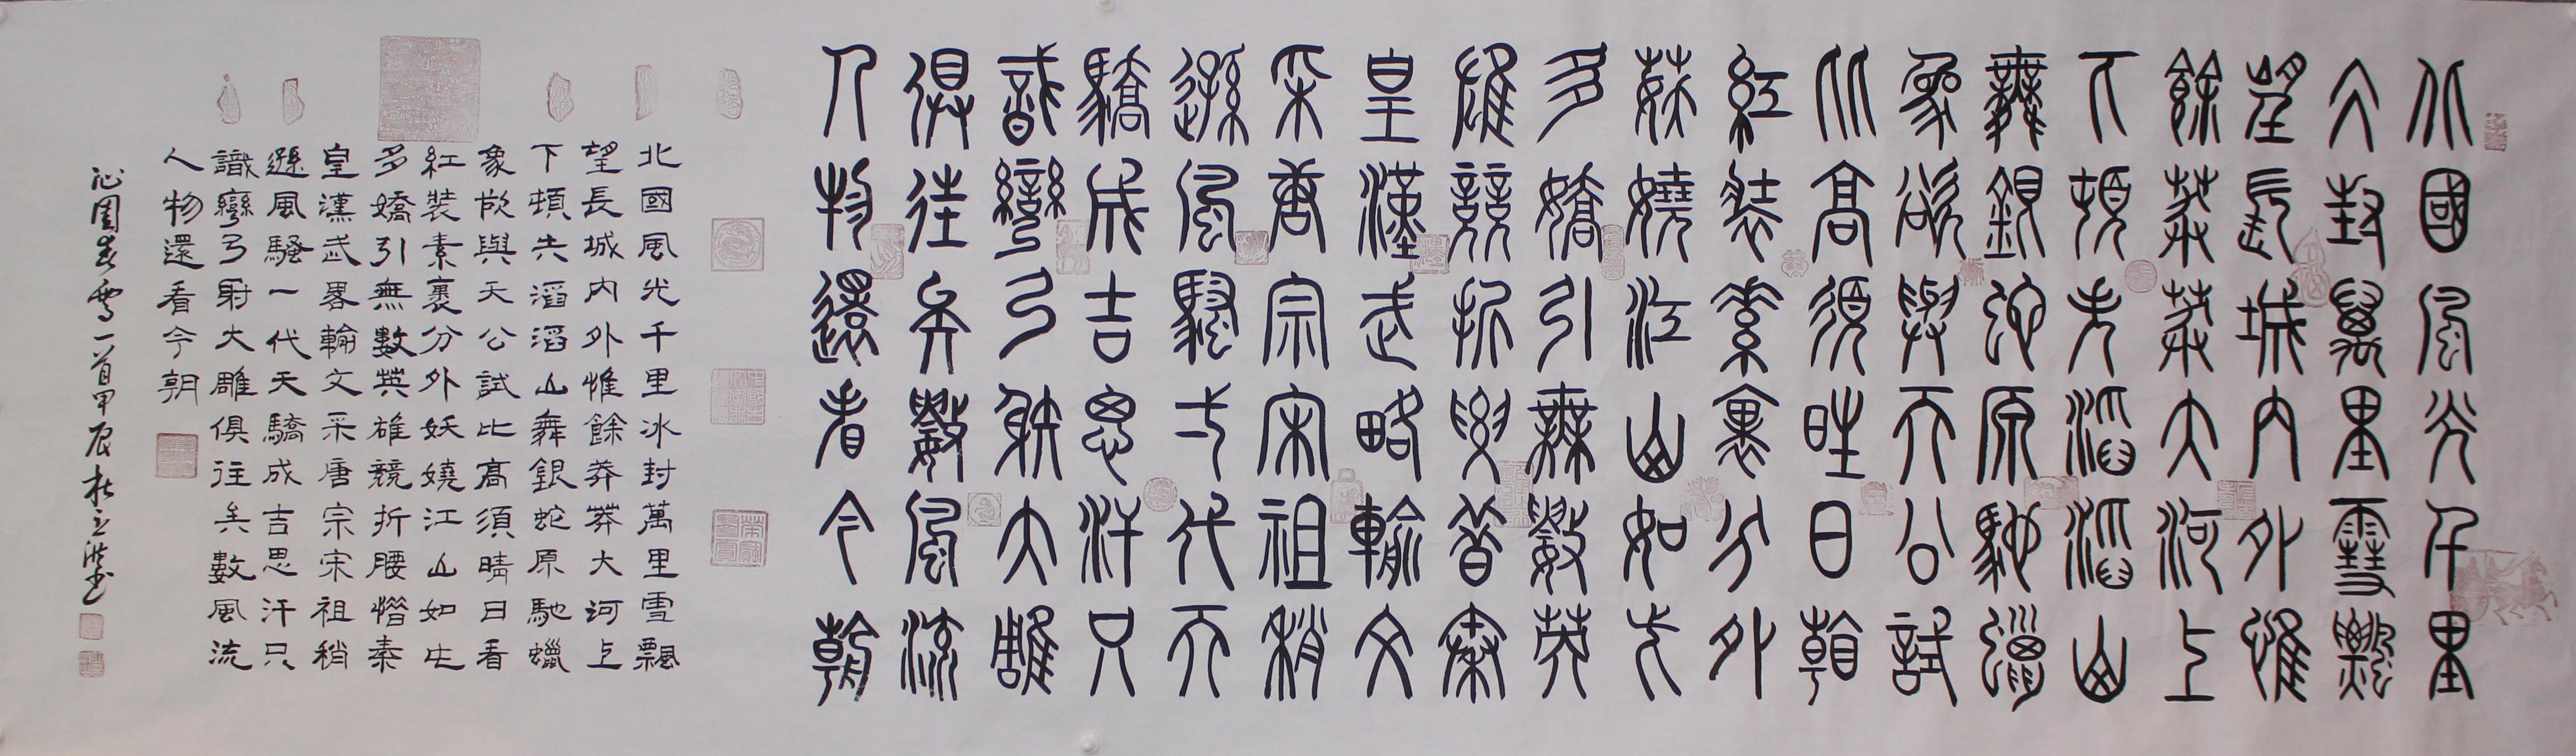 北國風光千里
冰封萬里雪飄
望長城內外惟
餘莽莽大河上
下頓失滔滔山
舞銀蛇原馳蠟
象欲與天公試
比高須晴日看
紅裝素裹分外
妖嬈江山如此
多嬌引無數英
雄競折腰惜秦
皇漢武略輸文
采唐宗宋祖稍
遜風騷一代天
驕成吉思汗只
識彎弓射大雕
俱往矣數風流
人物還看今朝
北國風光千里冰封萬里雪飄
望長城內外惟餘莽莽大河上
下頓失滔滔山舞銀蛇原馳蠟
象欲與天公試比高須晴日看
紅裝素裹分外妖嬈江山如此
多嬌引無數英雄競折腰惜秦
皇漢武畧輸文采唐宗宋祖稍
遜風騷一代天驕成吉思汗只
識彎弓射大雕俱往矣數風流
人物還看今朝
沁園春雪一首甲辰杜立洪書